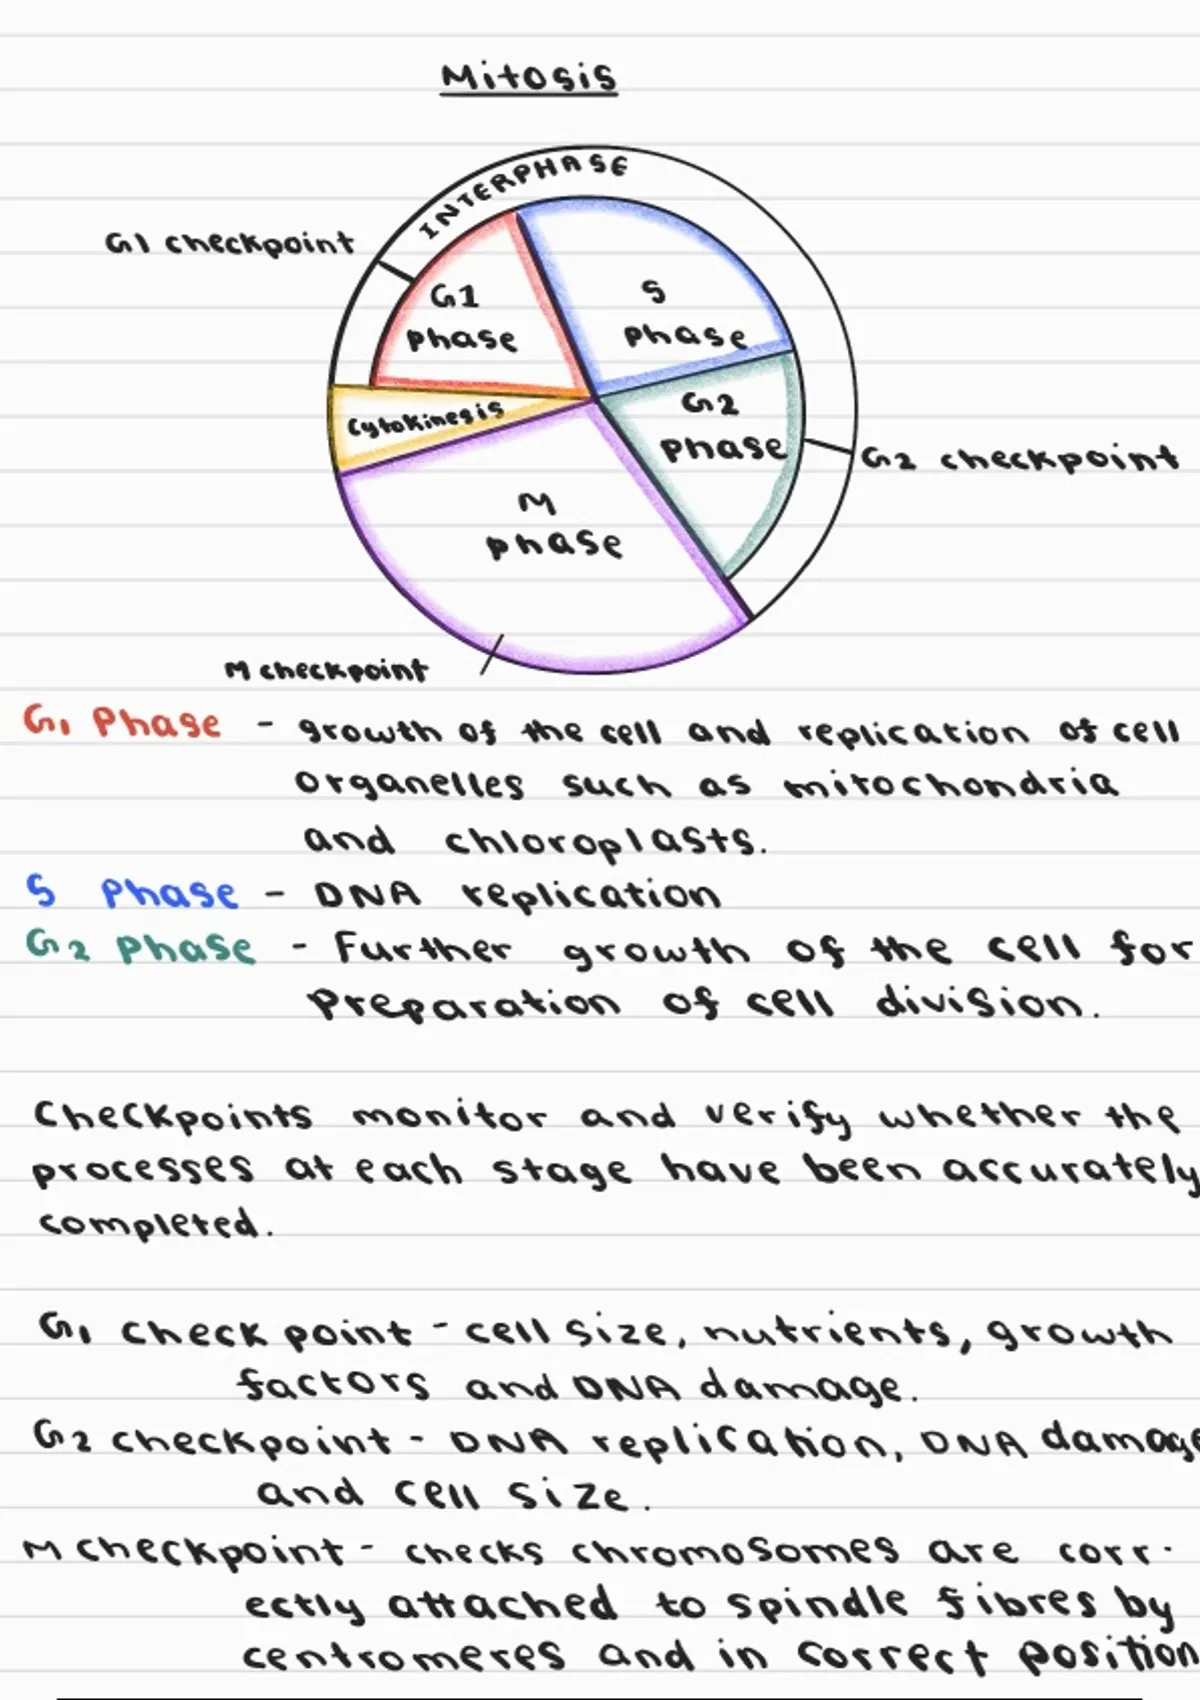 Mitosis
INTERPHASE
G1 checkpoint
G1
phase
S
phase
Cytokinesis
G2
phase
G2 checkpoint
M
phase
M checkpoint
G1 Phase - growth of the cell and replication of cell
organelles such as mitochondria
and chloroplasts.
S Phase - DNA replication
G2 phase - Further growth of the cell for
preparation of cell division.
Checkpoints monitor and verify whether the
processes at each stage have been accurately
completed.
G1 check point - cell size, nutrients, growth
factors and DNA damage.
G2 checkpoint - DNA replication, DNA damage
and cell size.
M checkpoint - checks chromosomes are corr-
ectly attached to spindle fibres by
centromeres and in correct position